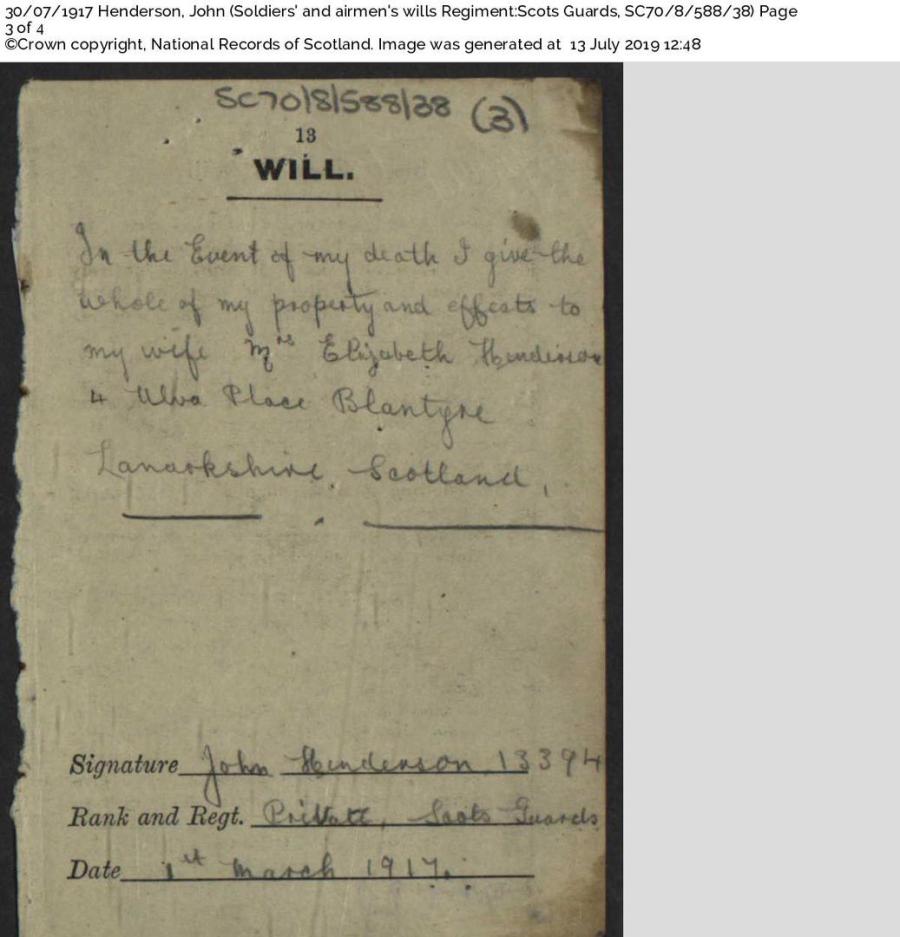 30/07/1917 Henderson, John (Soldiers' and airmen's wills Regiment:Scots Guards, SC70/8/588/38) Page
3 of 4
©Crown copyright, National Records of Scotland. Image was generated at 13 July 2019 12:48
SC70/8/588/38 (3)
13
WILL.
In the Event of my death I give the
whole of my property and effects to
my wife Mrs Elizabeth Henderson
4 Ulva Place Blantyre
Lanarkshire, Scotland,
Signature John Henderson 13394
Rank and Regt. Private, Scots Guards
Date 1st March 1917.